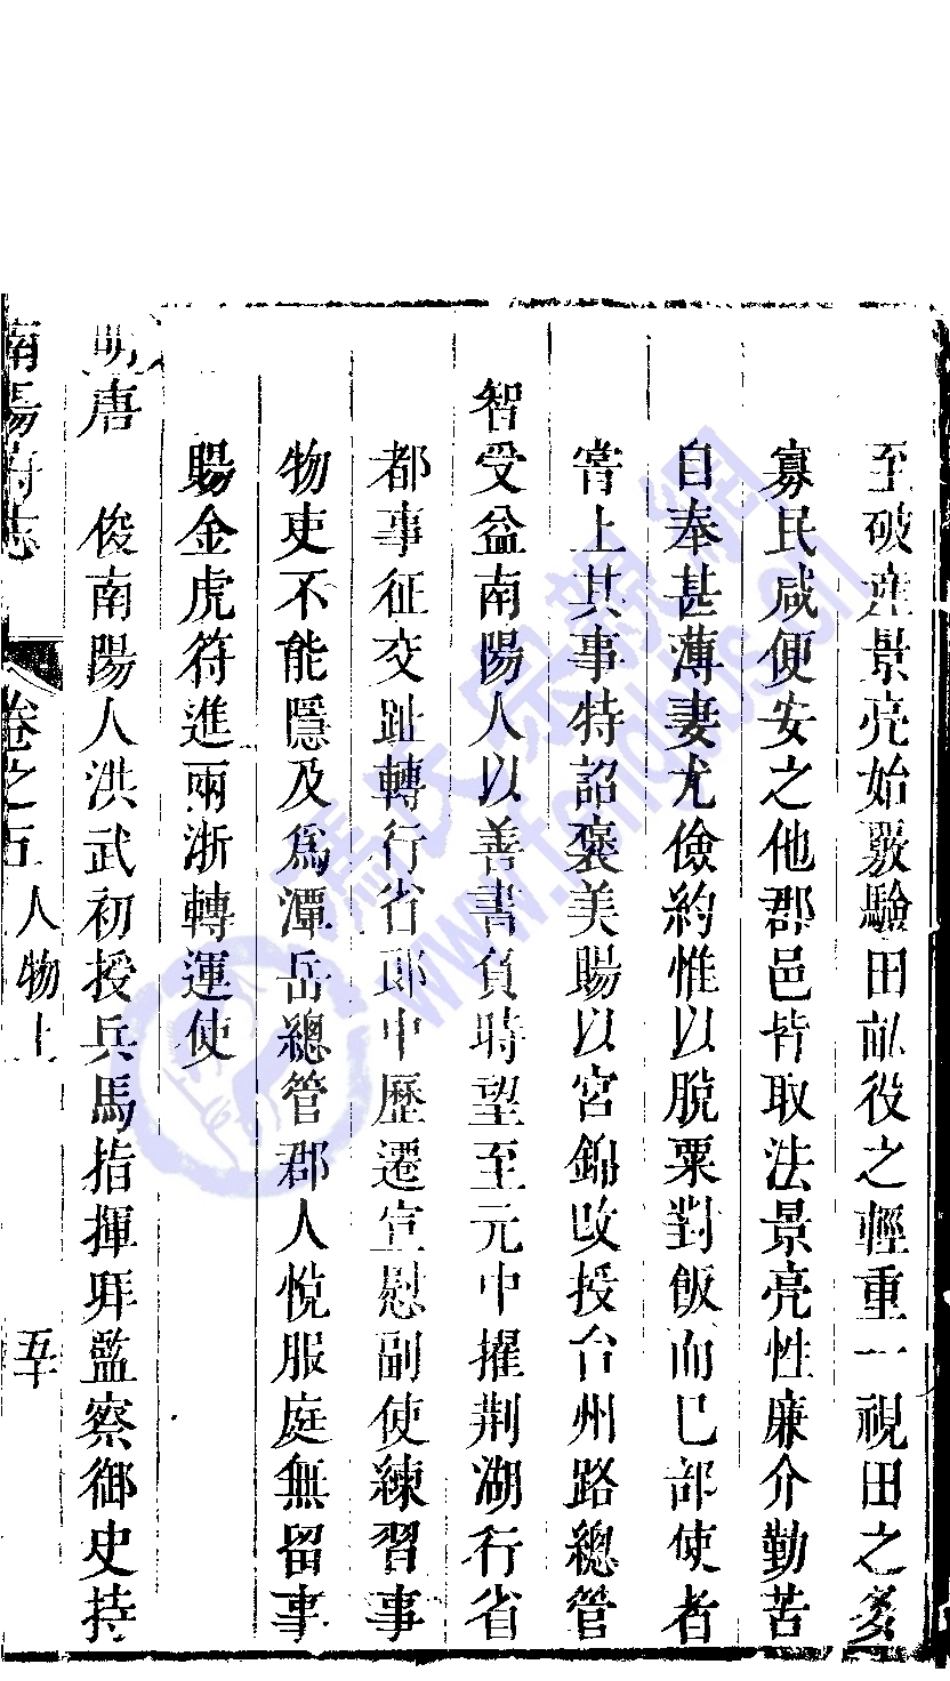 至破産景亮始覈驗田畝役之輕重一視田之多
寡民咸便安之他郡邑皆取法景亮性廉介勤苦
自奉甚薄妻尤儉約惟以脫粟對飯而已部使者
嘗上其事特詔褒美賜以宮錦改授台州路總管
智受益南陽人以善書負時望至元中擢荆湖行省
都事征交趾轉行省郎中歷遷宣慰副使練習事
物吏不能隱及爲潭岳總管郡人悅服庭無留事
賜金虎符進兩浙轉運使
明唐 俊南陽人洪武初授兵馬指揮拜監察御史持
南陽府志 卷之五 人物上 五十
馮氏宗親網
www.fengwang.cn